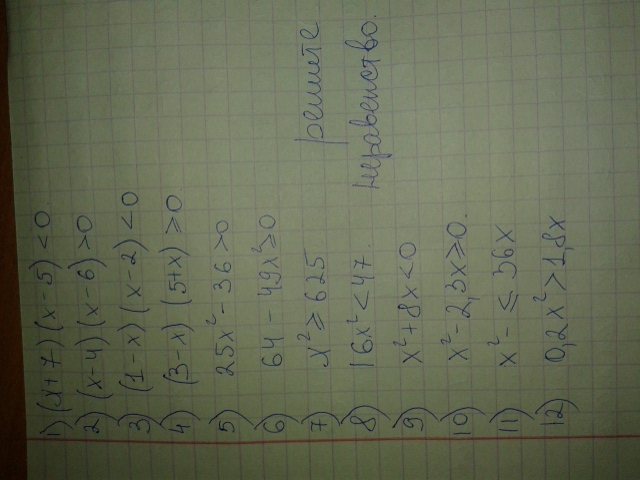 1) (x+7)(x-5)<0
2) (x-4)(x-6)>0
3) (1-x)(x-2)<0
4) (3-x)(5+x)≥0
5) 25x²-36>0
6) 64-49x²≥0
7) x²≥625
8) 16x²<47.
9) x²+8x<0
10) x²-2,3x≥0.
11) x²-≤36x
12) 0,2x²>1,8x
решите
неравенство.